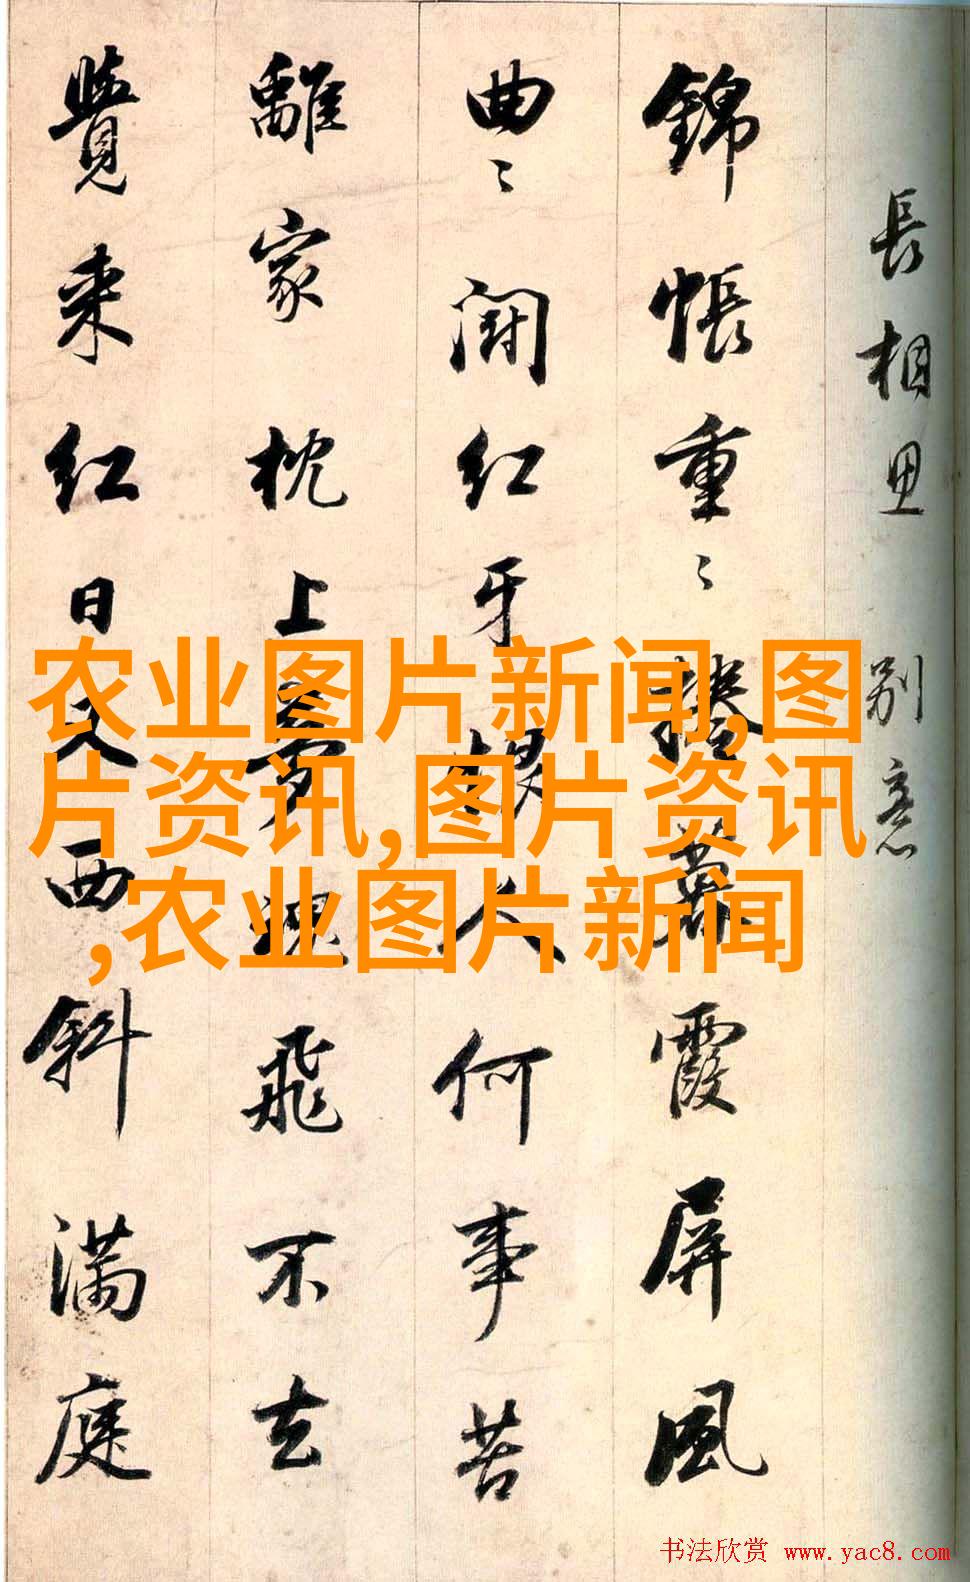 長相思 別意
錦帳重〻捲暮霞屏風
曲〻鬪紅牙恨人何事苦
離家枕上夢魂飛不去
覺來紅日又西斜滿庭
农业图片新闻,图
片资讯,图片资讯
,农业图片新闻
书法欣赏 www.yac8.com